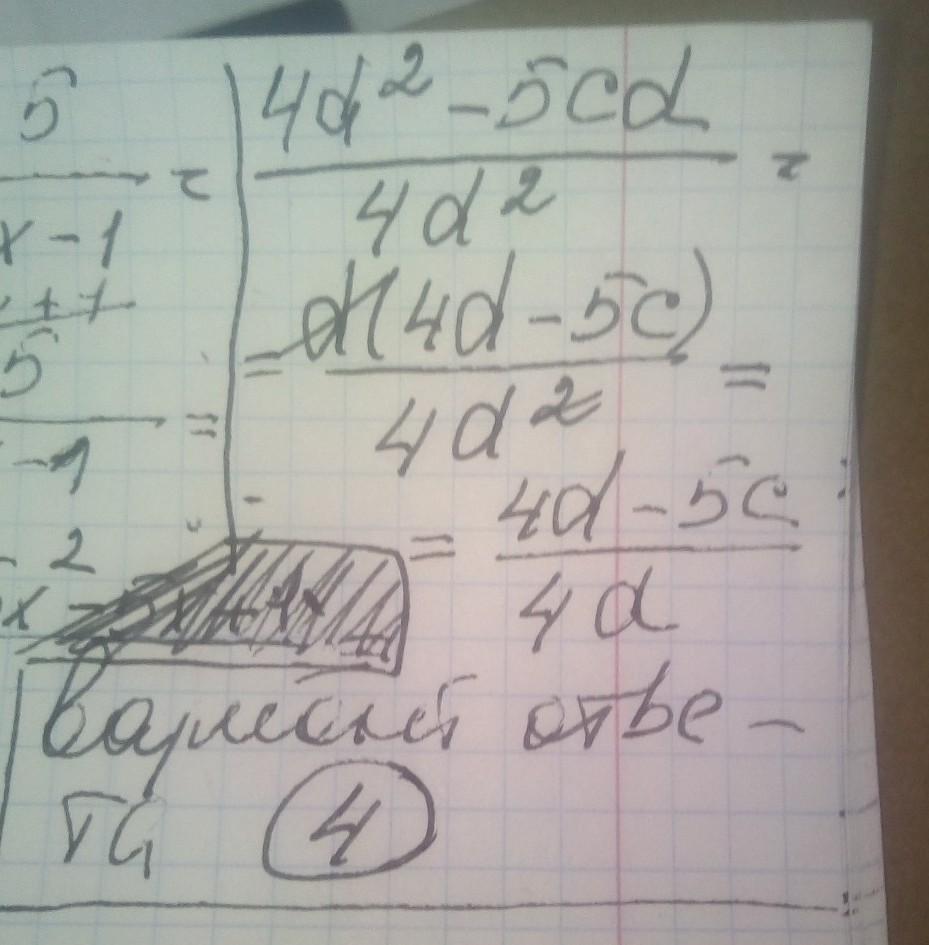 5
― =
x - 1
+ 1
5
― =
- 1
- 2
4d² - 5cd
― =
4d²
= d(4d - 5c)
― =
4d²
= 4d - 5c
―
4d
вариант отве -
та 4